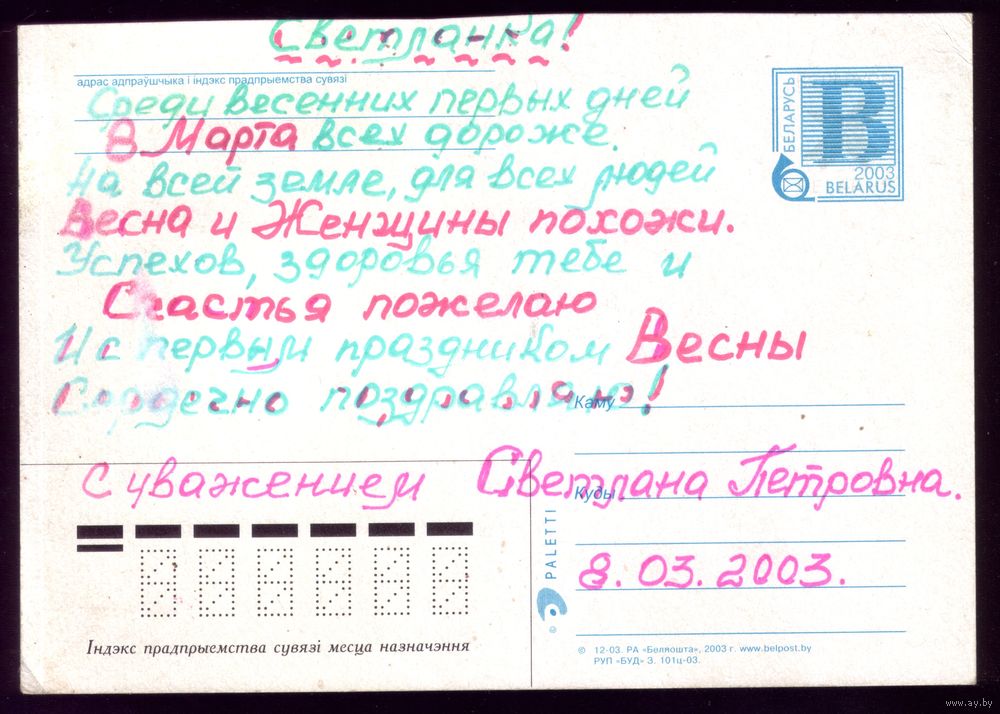 Светланка!
адрас адпраўшчыка і індэкс прадпрыемства сувязі
Среди весенних первых дней
8 Марта всех дороже.
На всей земле, для всех людей
Весна и Женщины похожи.
Успехов, здоровья тебе и
Счастья пожелаю
И с первым праздником Весны
Сердечно поздравляю!
С уважением Светлана Петровна.
8.03.2003.
БЕЛАРУСЬ
B
2003
BELARUS
Каму
Куды
PALETTI
Індэкс прадпрыемства сувязі месца назначэння
© 12-03. РА «Белпошта», 2003 г. www.belpost.by
РУП «БУД» З. 101ц-03.
www.ay.by